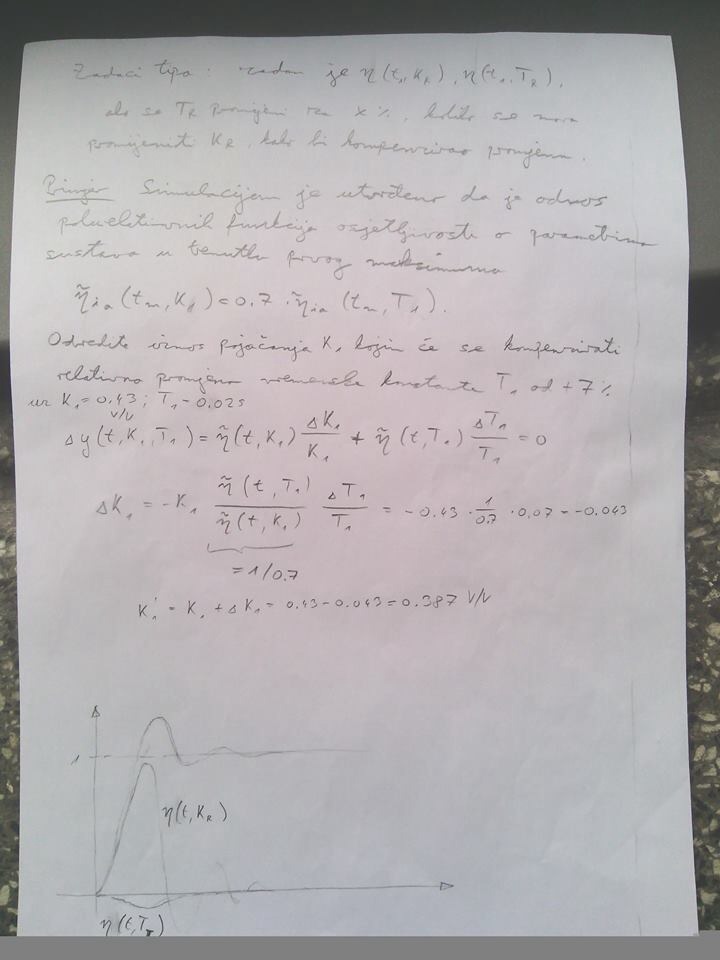 Zadaci tipa: zadan je η(t, K_R), η(t, T_R),
ako se T_R promijeni za x%, koliko se mora
promijeniti K_R, kako bi kompenzirao promjenu.
Primjer Simulacijom je utvrđeno da je odnos
polurelativnih funkcija osjetljivosti o parametrima
sustava u trenutku prvog maksimuma
η̃_ia(t_m, K_1) = 0.7 · η̃_ia(t_m, T_1).
Odredite iznos pojačanja K_1 kojim će se kompenzirati
relativna promjena vremenske konstante T_1 od +7%
uz K_1 = 0.43 V/V; T_1 = 0.02s
Δy(t, K_1, T_1) = η̃(t, K_1) ΔK_1/K_1 + η̃(t, T_1) ΔT_1/T_1 = 0
ΔK_1 = -K_1 η̃(t, T_1)/η̃(t, K_1) ΔT_1/T_1 = -0.43 · 1/0.7 · 0.07 = -0.043
= 1/0.7
K_1' = K_1 + ΔK_1 = 0.43 - 0.043 = 0.387 V/V
1
η(t, K_R)
η(t, T_I)